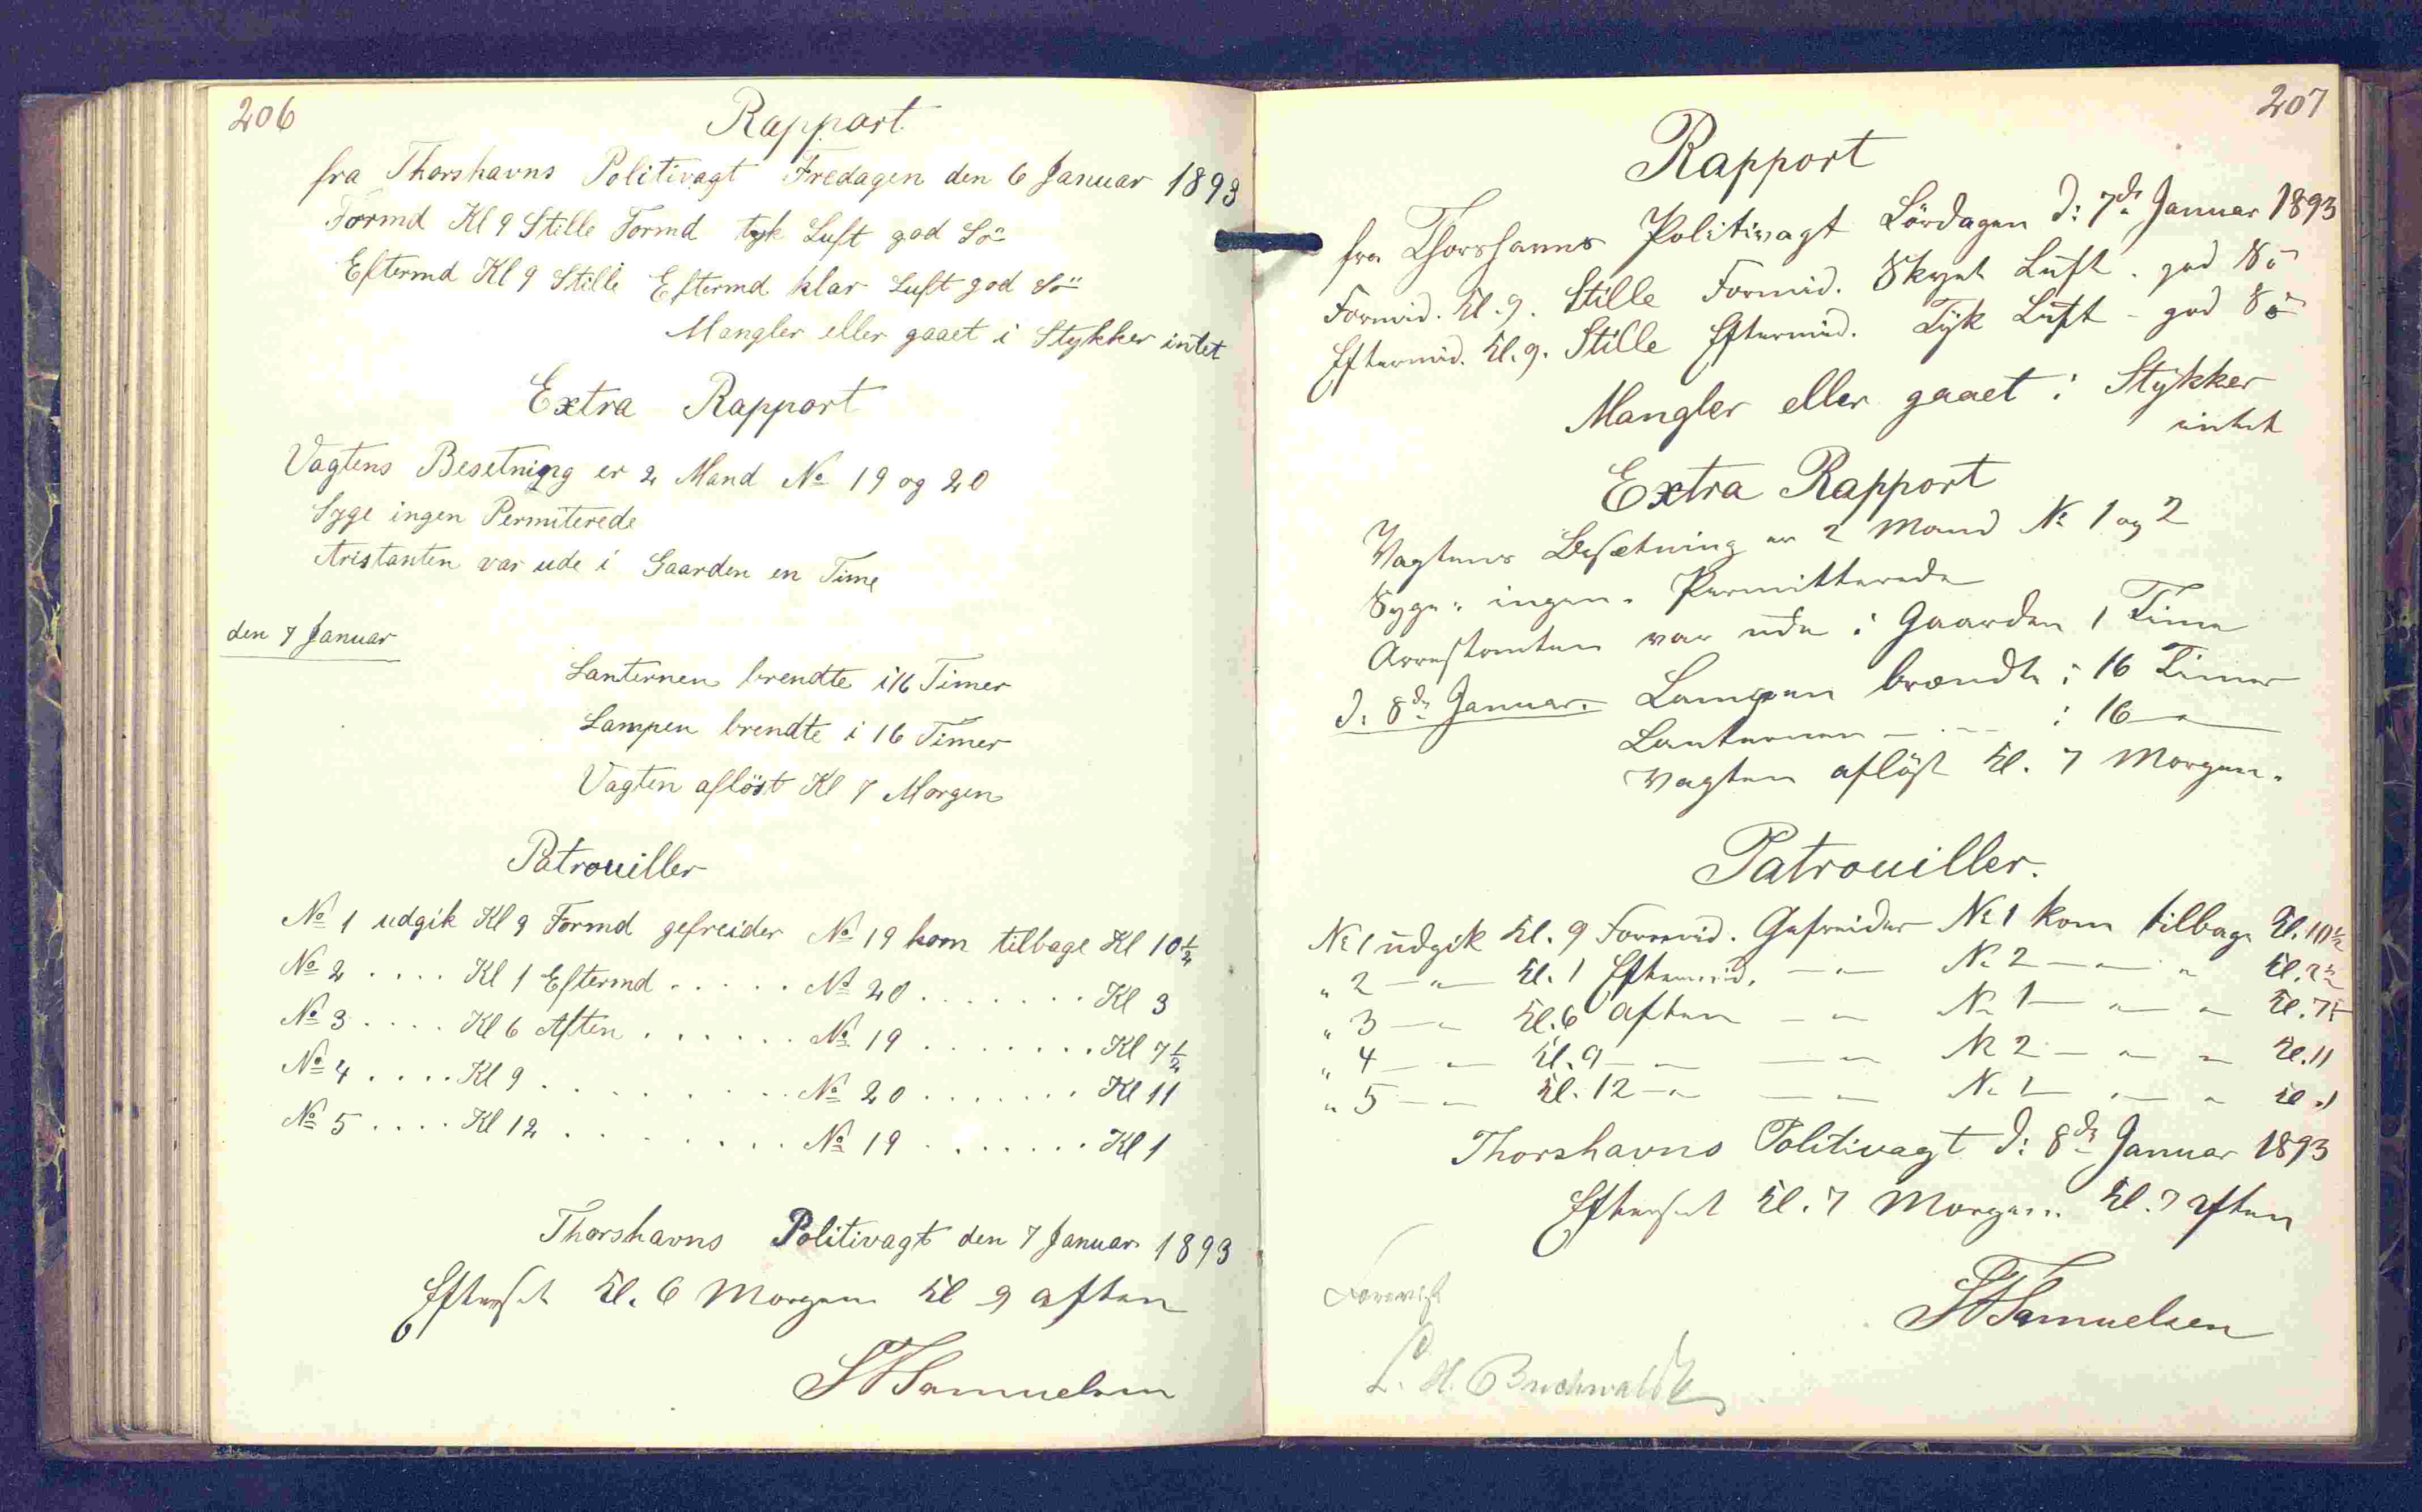 206
Rapport.
fra Thorshavns Politivagt Fredagen den 6 Januar 1893
Formd Kl 9 Stille Formd tyk Luft god Sö
Eftermd Kl 9 Stille Eftermd klar Luft god Sö
Mangler eller gaaet i Stykker intet
Extra Rapport
Vagtens Besetning er 2 Mand No 19 og 20
Syge ingen Permiterede
Aristanten var ude i Gaarden en Time
den 7 Januar
Lanternen brendte i 16 Timer
Lampen brendte i 16 Timer
Vagten aflöst Kl 7 Morgen
Patrouiller
No 1 udgik Kl 9 Formd gefreider No 19 kom tilbage Kl 10 1/2
No 2 .... Kl 1 Eftermd ..... No 20 ....... Kl 3
No 3 .... Kl 6 Aften ...... No 19 ........ Kl 7 1/2
No 4 .... Kl 9 ....... No 20 ....... Kl 11
No 5 .... Kl 12 ....... No 19 ....... Kl 1
Thorshavns Politivagt den 7 Januar 1893
Efterset Kl. 6 Morgen Kl 9 aften
Samuelsen
207
Rapport
fra Thorshavns Politivagt Lördagen d: 7de Januar 1893
Formid. Kl. 9. Stille Formid. Skyet Luft - god Sö
Eftermid. Kl. 9. Stille Eftermid. Tyk Luft - god Sö
Mangler eller gaaet i Stykker
intet
Extra Rapport
Vagtens Besætning er 2 Mand No 1 og 2
Syge " ingen " Permitterede
Arrestanten var ude i Gaarden 1 Time
d: 8de Januar. Lampen brændte i 16 Timer
Lanternen — " — i 16 — "
Vagten aflöst Kl. 7 Morgen.
Patrouiller.
No 1 udgik Kl. 9 Formid. Gefreider No 1 kom tilbage Kl. 10 1/2
" 2 — " — Kl. 1 Eftermid. — " — No 2 — " — " Kl. 2 1/2
" 3 — " Kl. 6 aften — " No 1 — " — " Kl. 7 1/2
" 4 — " — Kl. 9 — " — " No 2 — " — " Kl. 11
" 5 — " Kl. 12 — " — " No 1 — " — " Kl. 1
Thorshavns Politivagt d: 8de Januar 1893
Efterset Kl. 7 Morgen. Kl. 7 aften
Samuelsen
Forevist
L. H. Buchwaldt